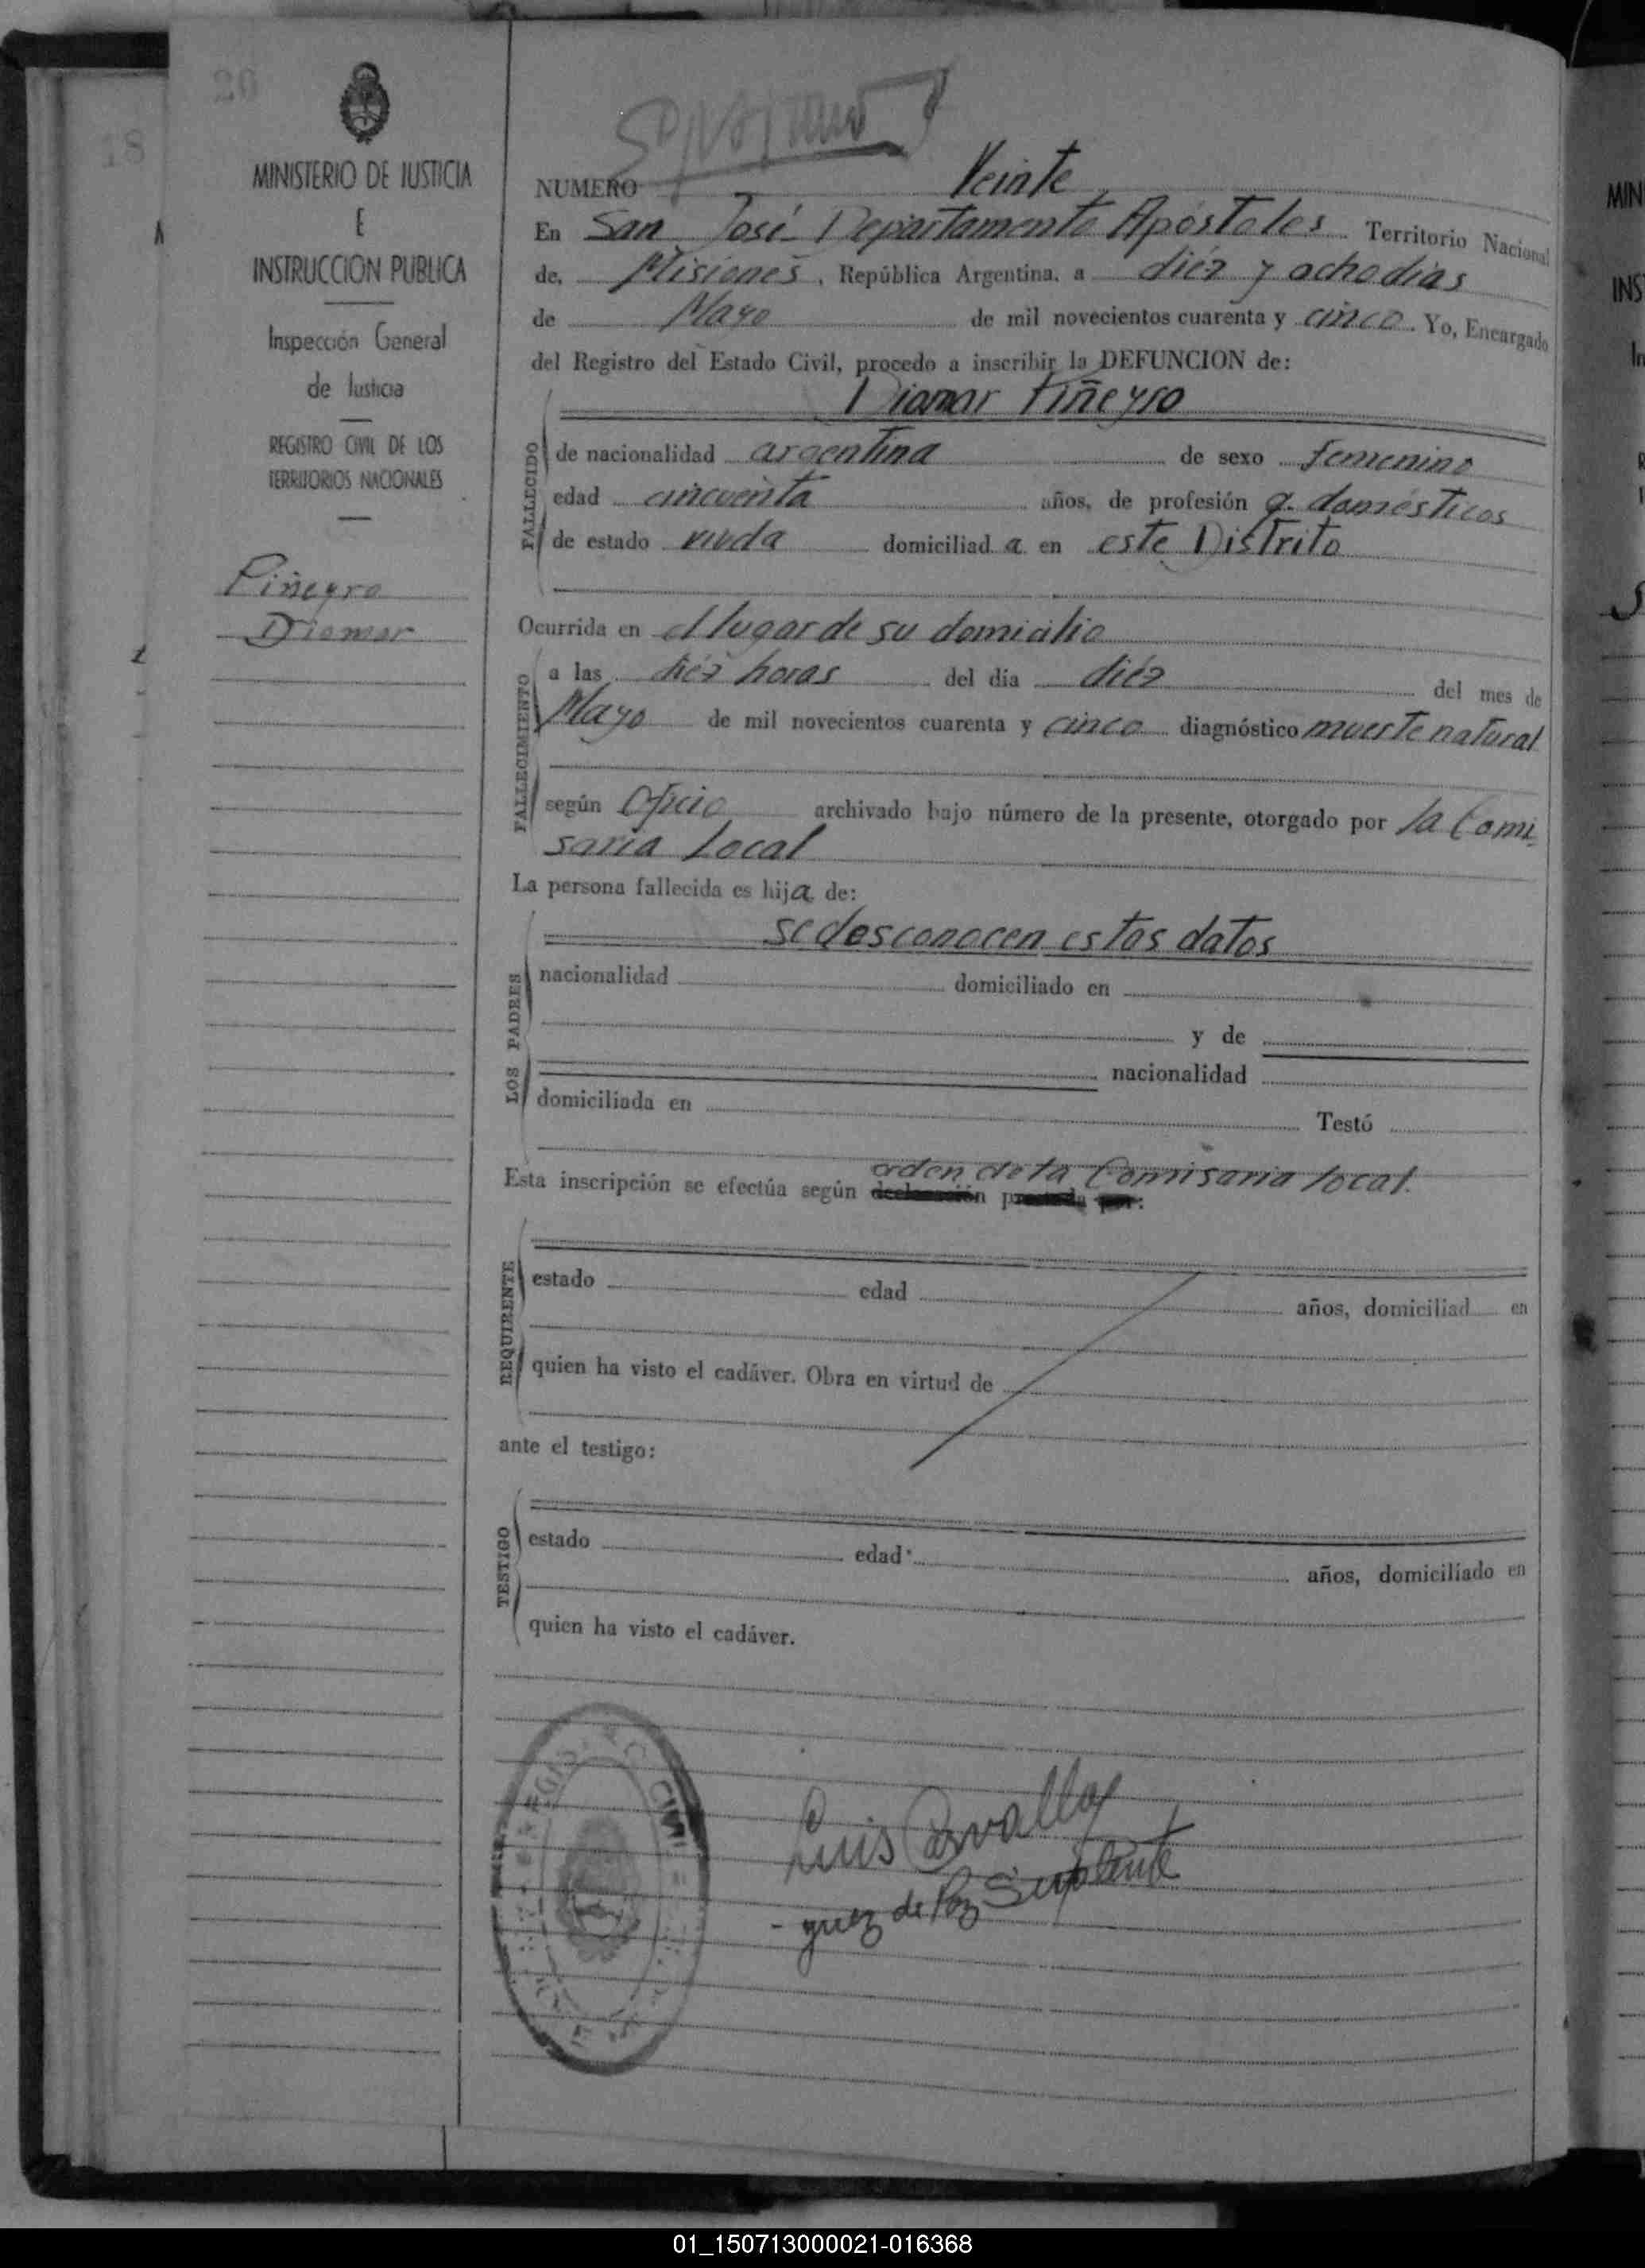 20
18
MINISTERIO DE JUSTICIA
E
INSTRUCCION PUBLICA
Inspección General
de Justicia
REGISTRO CIVIL DE LOS
TERRITORIOS NACIONALES
Piñeyro
Diomar
NUMERO Veinte
En San José Departamento Apóstoles Territorio Nacional
de, Misiones, República Argentina, a diéz y ocho dias
de Mayo de mil novecientos cuarenta y cinco. Yo, Encargado
del Registro del Estado Civil, procedo a inscribir la DEFUNCION de:
Diomar Piñeyro
FALLECIDO
de nacionalidad argentina de sexo femenino
edad cincuenta años, de profesión q. domésticos
de estado viuda domiciliad a en este Distrito
Ocurrida en el lugar de su domicilio
FALLECIMIENTO
a las diéz horas del día diéz del mes de
Mayo de mil novecientos cuarenta y cinco diagnóstico muerte natural
según Oficio archivado bajo número de la presente, otorgado por la Comi
saria Local
La persona fallecida es hija de:
LOS PADRES
se desconocen estos datos
nacionalidad domiciliado en
y de
nacionalidad
domiciliada en Testó
orden de la Comisaria local.
Esta inscripción se efectúa según declaración prestada por:
REQUIRENTE
estado edad años, domiciliad en
quien ha visto el cadáver. Obra en virtud de
ante el testigo:
TESTIGO
estado edad años, domiciliado en
quien ha visto el cadáver.
CIVIL
Luis
Juez de Paz Suplente
01_150713000021-016368